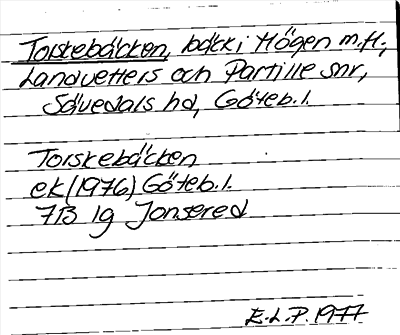 Torskebäcken, bäck i Högen m.fl.,
Landvetters och Partille snr,
Sävedals hd, Göteb.l.
Torskebäcken
ek (1976) Göteb.l.
7B 1g Jonsered
E.L.P. 1977